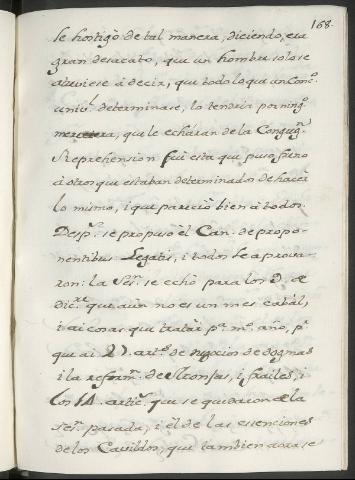 168.
le hostigò de tal manera, diciendo, era
gran desacato, que un hombre solo se
atuviese à decir, que todo lo que un Conc.º
univ.l determinase, lo tendria por ning.º
que le echáran de la Congreg.n
Reprehension fuè esta que puso freno
à otros que estaban determinados de hacer
lo mismo, i que pareciò bien à todos.
Desp.s se propuso èl Can. de propo-
nentibus Legatis, i todos le aprova-
ron: la Ses.n se echò para los 3. de
Dic.re que aùn no es un mes cabàl,
i ai cosas que tratàr p.a m.o año, p.r
que ai 21. art.os de negocios de dogmas
i la reform.n de Monjas, i frailes, i
los 14. artic.s que se quedaron de la
Ses.n pasada, i èl de las essenciones
de los Cavildos, que tambien aora se